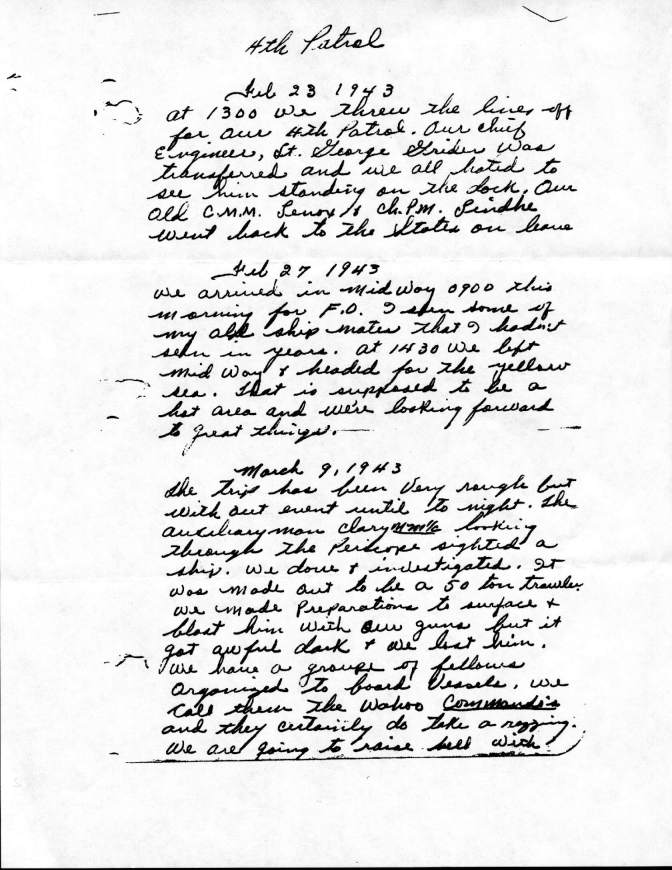 4th Patrol
Feb 23 1943
at 1300 we threw the lines off
for our 4th Patrol. Our chief
Engineer, Lt. George Grider was
transferred and we all hated to
see him standing on the dock. Our
Old C.M.M. Lenox & Ch.P.M. Lindhe
went back to the States on leave
Feb 27 1943
we arrived in Midway 0900 this
morning for F.O. I seen some of
my old ship mates that I hadn't
seen in years. at 1430 we left
Mid Way & headed for the yellow
sea. That is supposed to be a
hot area and we're looking forward
to great things.
March 9, 1943
The trip has been very rough but
with out event until to night. The
auxiliaryman Clary MM1/c looking
through the Periscope sighted a
ship. we dove & investigated. It
was made out to be a 50 ton trawler.
we made Preparations to surface &
blast him with our guns but it
got awful dark & we lost him.
We have a groupe of fellows
organized to board Vessels. we
call them the Wahoo Commando's
and they certainly do take a razzing.
We are going to raise hell with